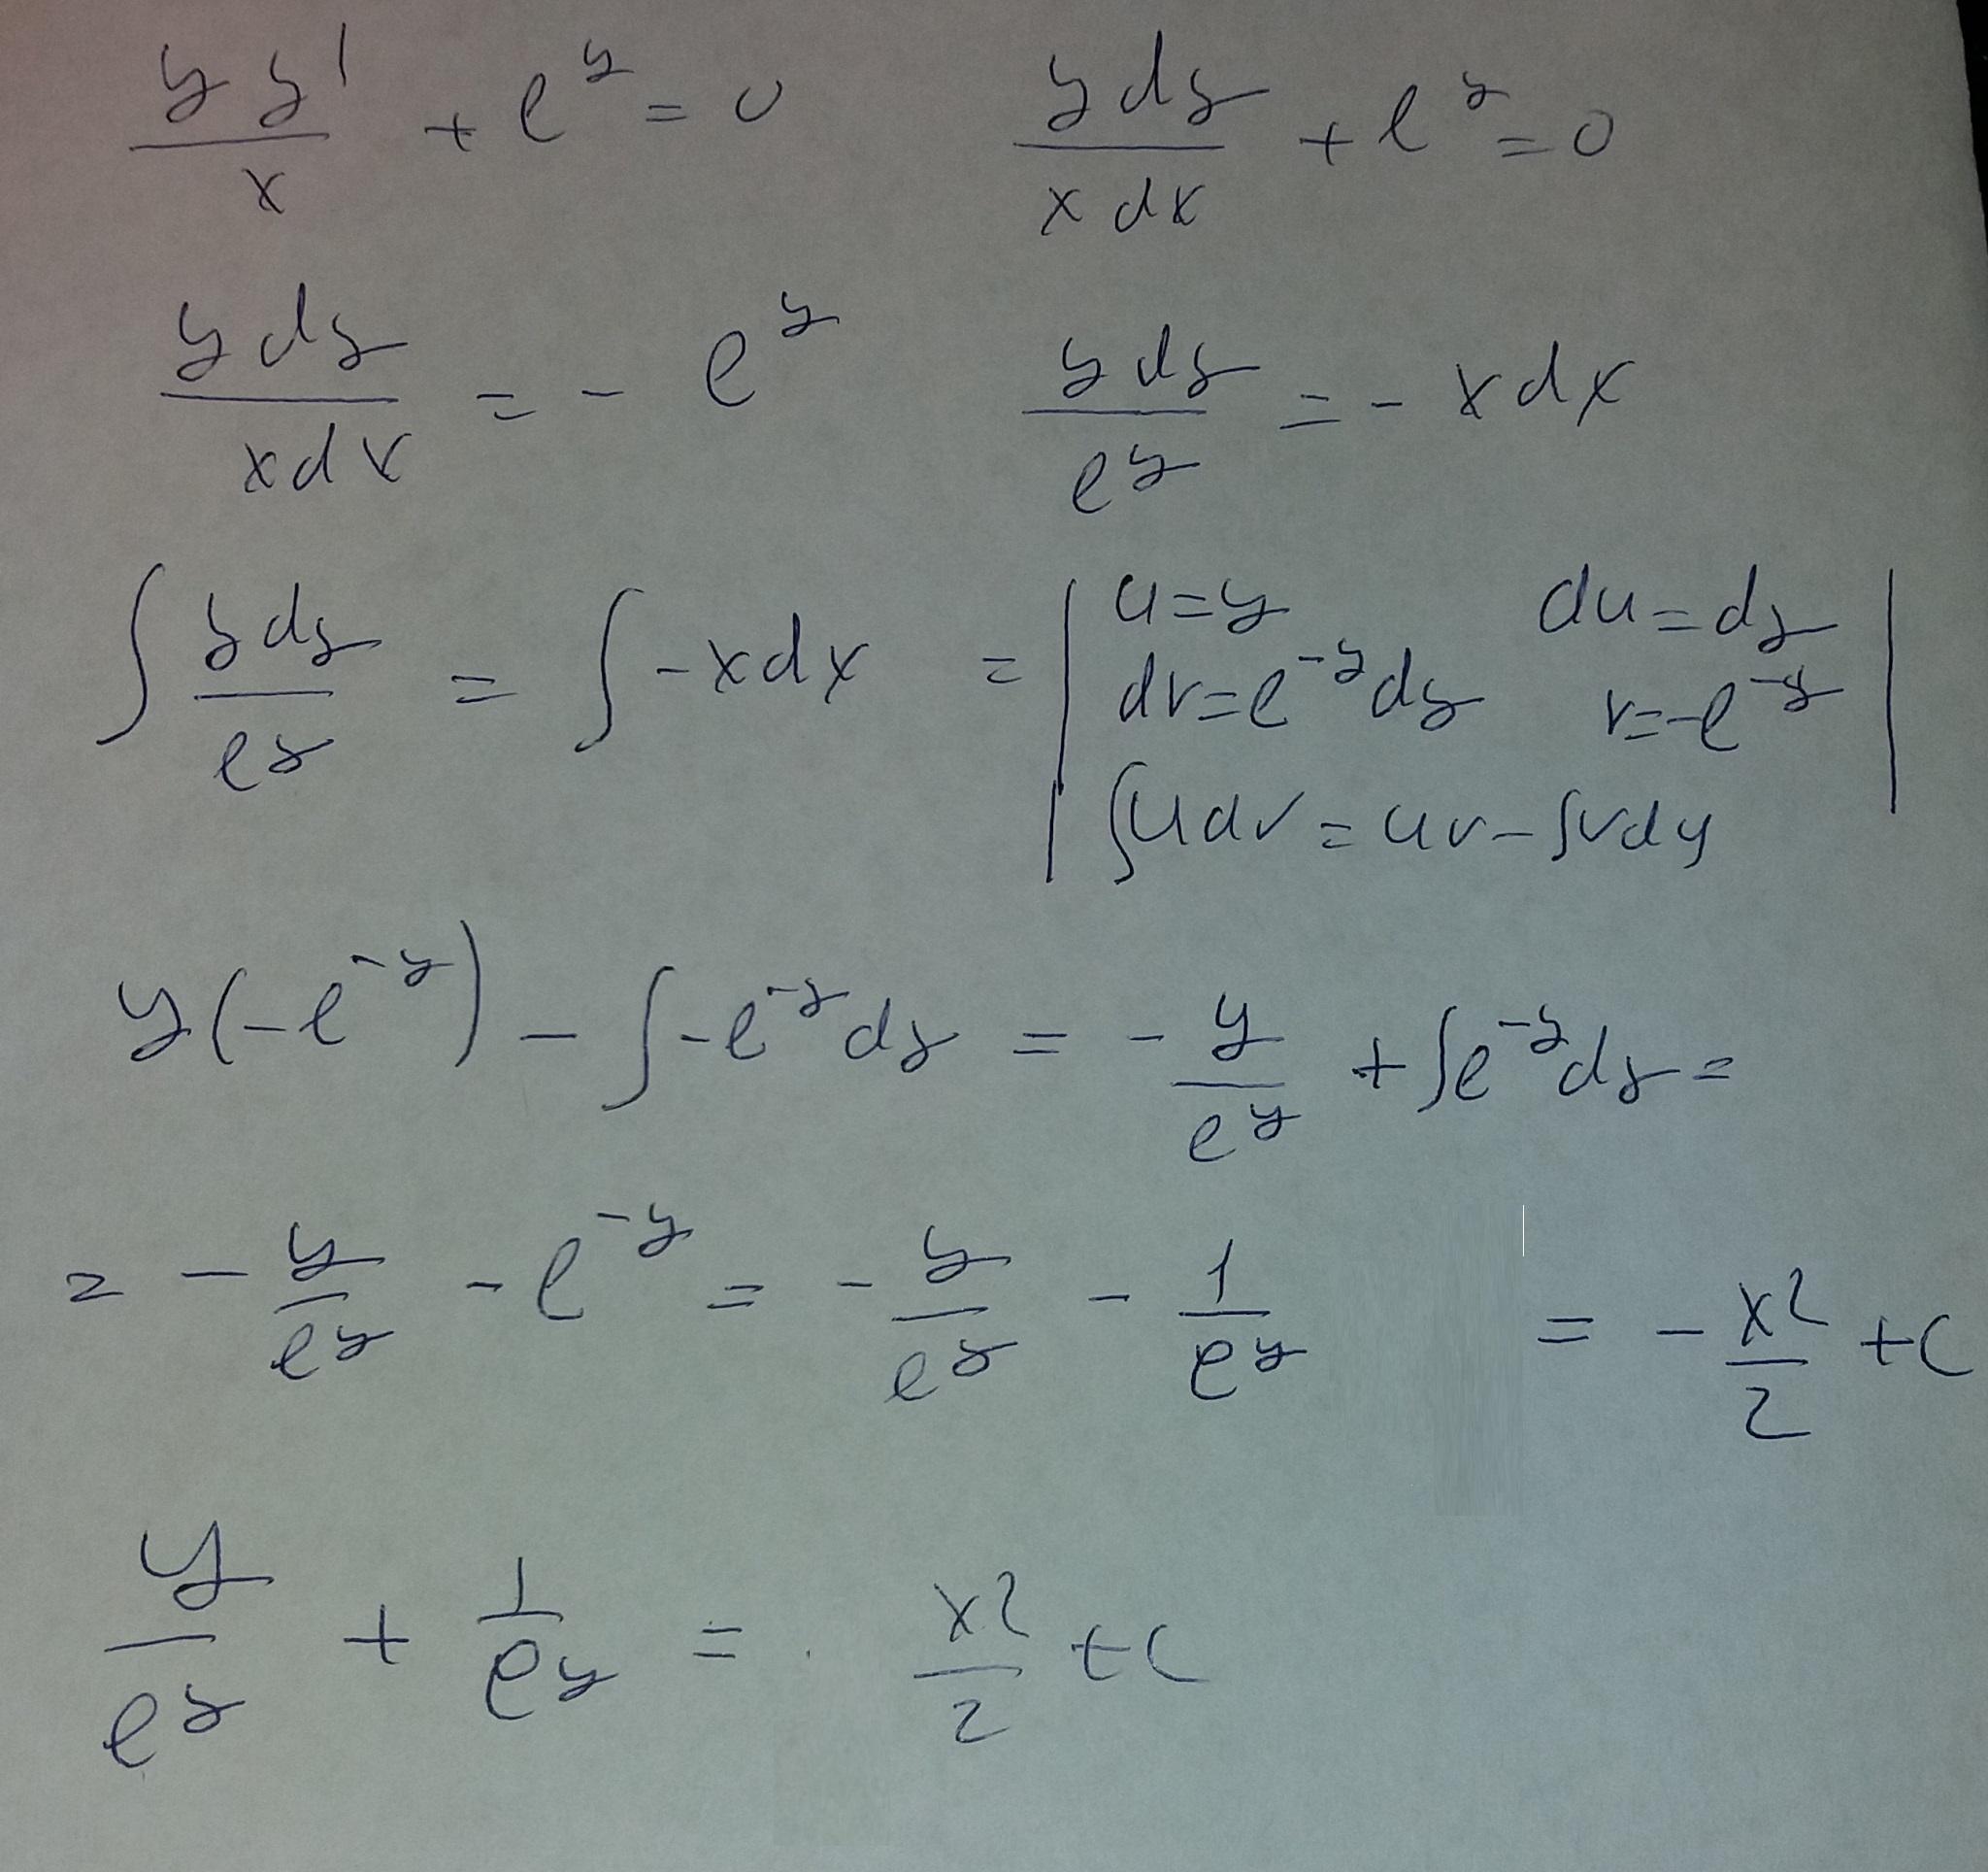 yy'/x + e^y = 0    ydy/xdx + e^y = 0
ydy/xdx = - e^y    ydy/e^y = - xdx
∫ ydy/e^y = ∫ -xdx = | u=y  du=dy
dv=e^-y dy  v=-e^-y |
| ∫udv = uv - ∫vdu
y(-e^-y) - ∫ -e^-y dy = - y/e^y + ∫e^-y dy =
= - y/e^y - e^-y = - y/e^y - 1/e^y = - x²/2 + C
y/e^y + 1/e^y = x²/2 + C